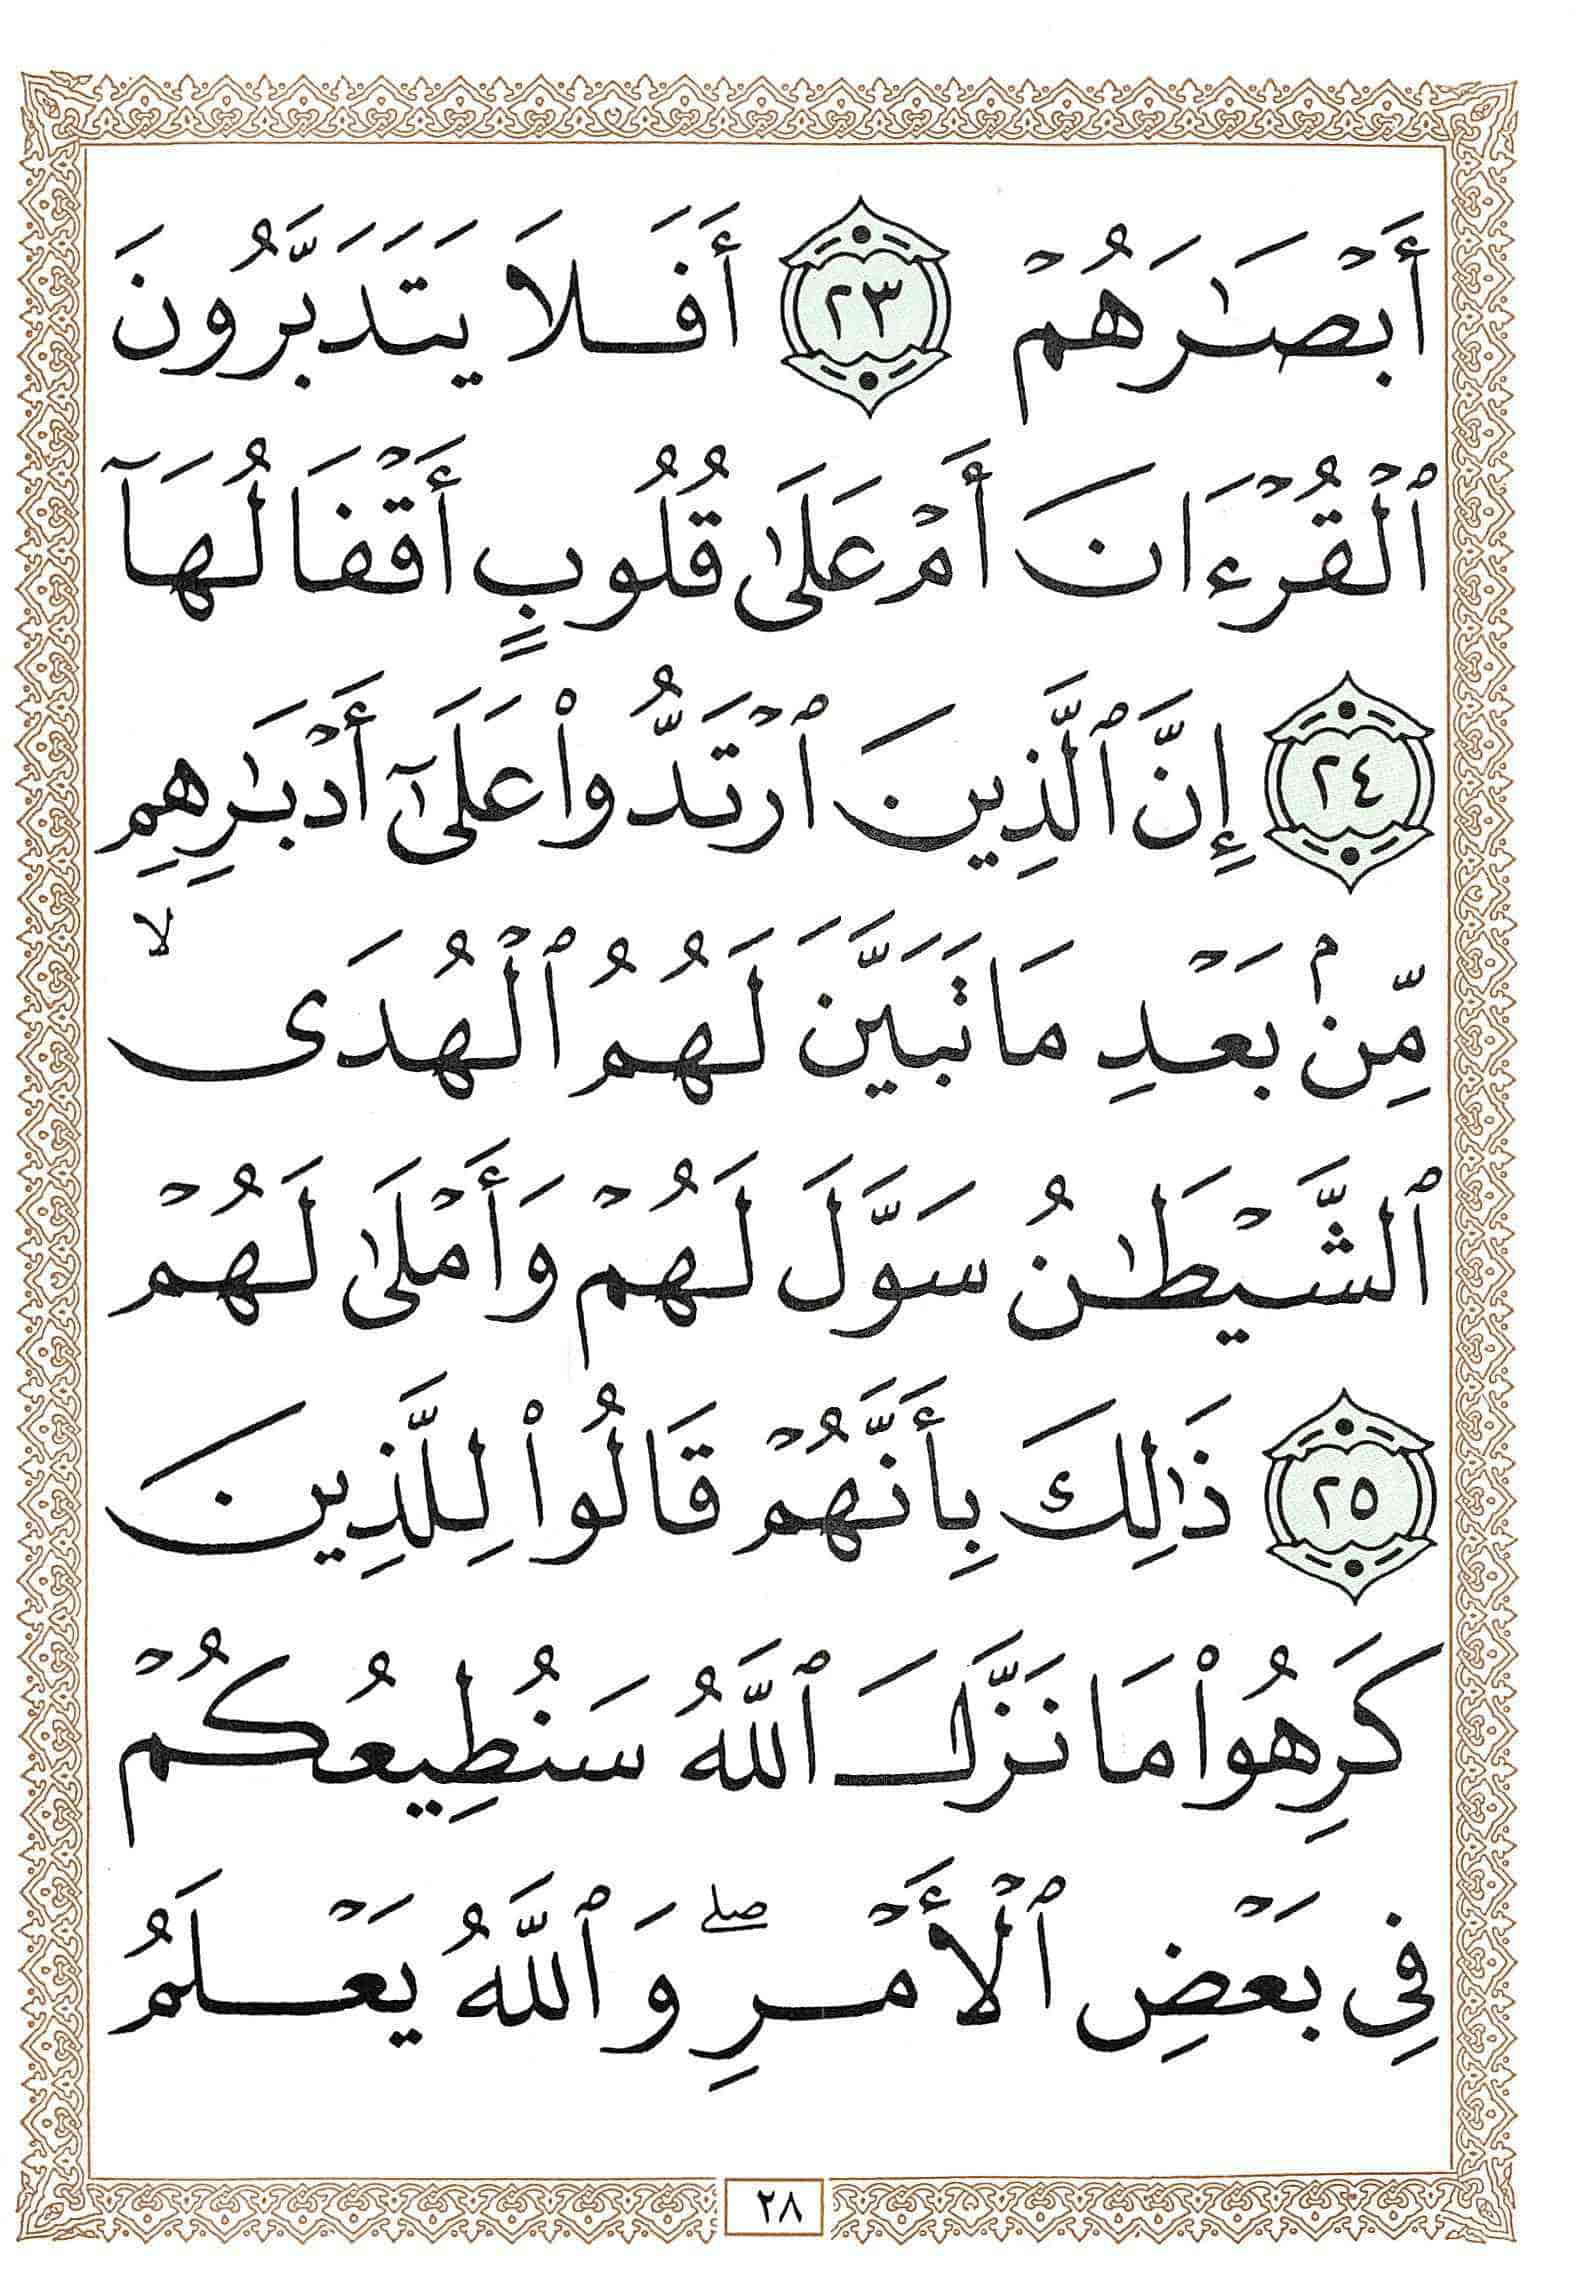 أَبۡصَـٰرَهُمۡ ٢٣ أَفَلَا يَتَدَبَّرُونَ
ٱلۡقُرۡءَانَ أَمۡ عَلَىٰ قُلُوبٍ أَقۡفَالُهَآ
٢٤ إِنَّ ٱلَّذِينَ ٱرۡتَدُّواْ عَلَىٰٓ أَدۡبَـٰرِهِم
مِّنۢ بَعۡدِ مَا تَبَيَّنَ لَهُمُ ٱلۡهُدَىۙ
ٱلشَّيۡطَـٰنُ سَوَّلَ لَهُمۡ وَأَمۡلَىٰ لَهُمۡ
٢٥ ذَٰلِكَ بِأَنَّهُمۡ قَالُواْ لِلَّذِينَ
كَرِهُواْ مَا نَزَّلَ ٱللَّهُ سَنُطِيعُكُمۡ
فِي بَعۡضِ ٱلۡأَمۡرِۖ وَٱللَّهُ يَعۡلَمُ
٢٨